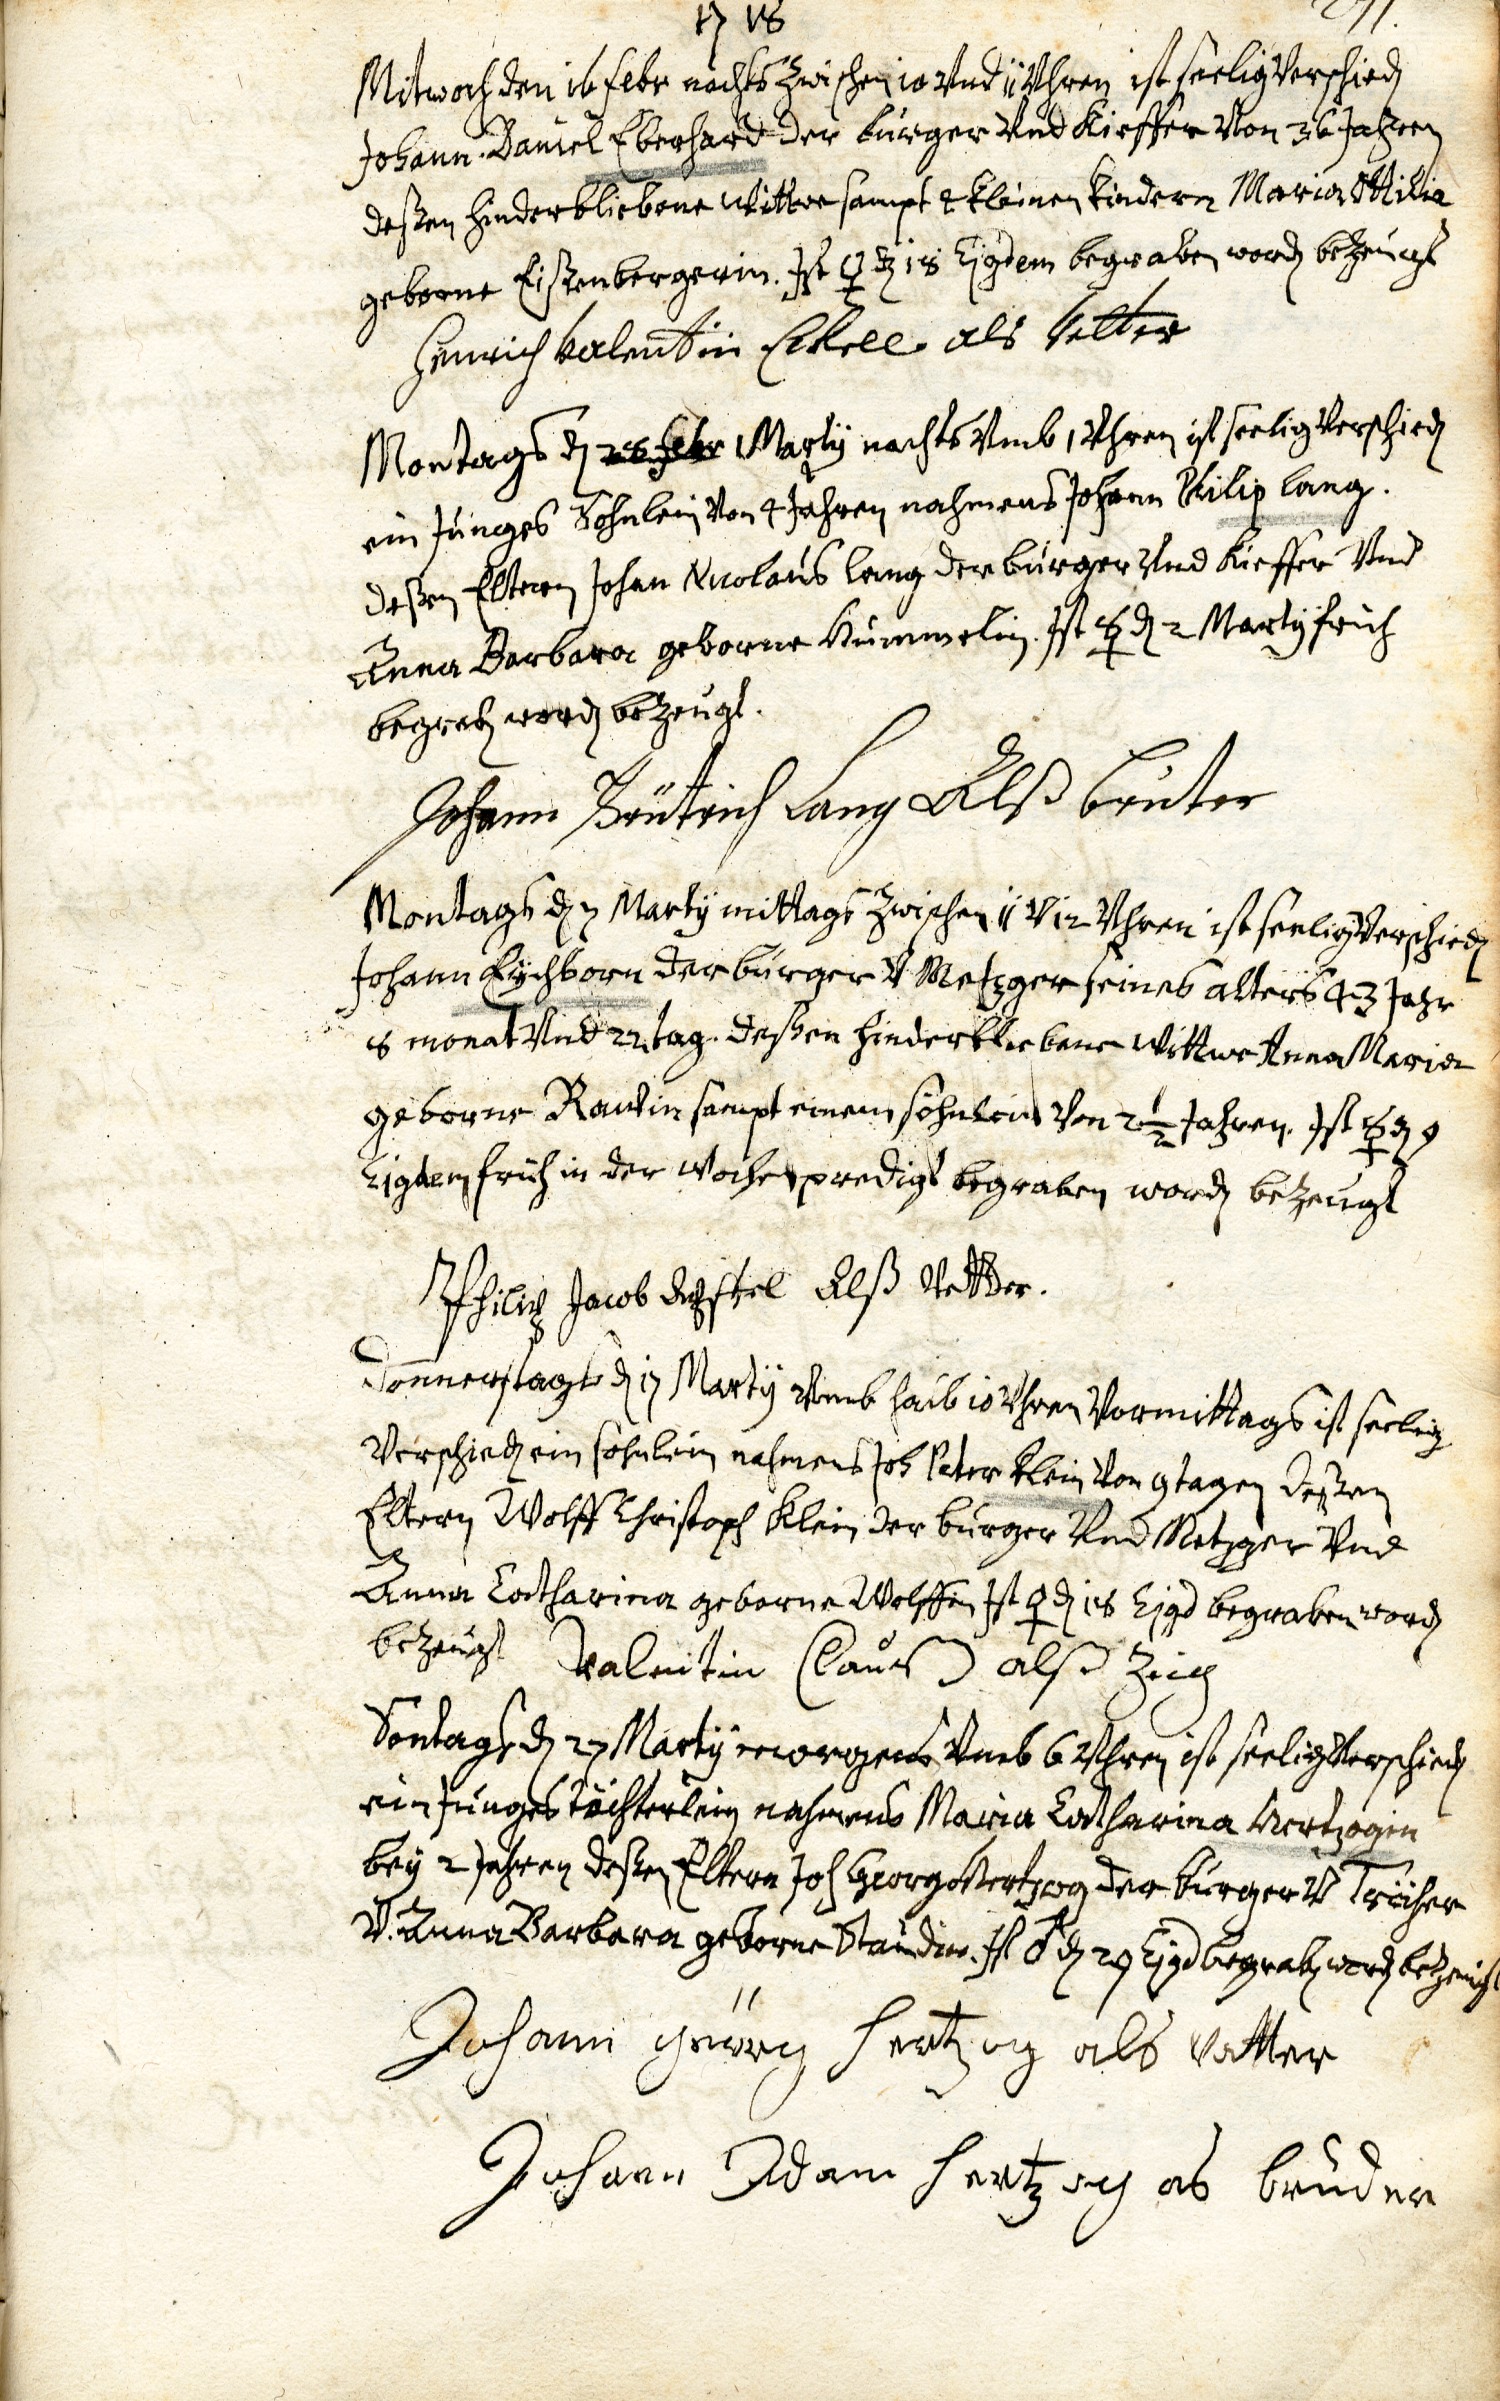 1718
Mitwoch den 16 febr nachts zwischen 10 Vnd 11 Vhren ist seelig Verschied
Johann Daniel Eberhard der burger Vnd Kieffer Von 36 Jahren
deßen hinderbliebene Wittwe sampt kleinen kindern Maria Ottilia
geborne Eißenbergerin. Ist ♀ d 18 Ejgdem begraben word bezeugt
Henrich Valentin Eckell als Vetter
Montags d 28 febr 1 Martÿ nachts Vmb 1 Vhren ist seelig Verschied
ein Junges Söhnlein Von 4 Jahren nahmens Johann Philip Lang.
deßen Eltern Johan Nicolaus Lang der burger Vnd Kieffer Vnd
Anna Barbara geborne Kümmelin. Ist ☿ d 2 Martÿ früh
begrab word bezeugt.
Johann Lang Alß bruter
Montags d 7 Martÿ mittags zwischen 11 V 12 Vhren ist seelig Verschied
Johann Eÿchborn der burger V Metzger seines alters 43 Jahr
8 monat Vnd 22 tag. deßen hinderbliebene Wittwe Anna Maria
geborne Rautin sampt einem söhnlein Von 2 1/2 Jahren. Ist ☿ d 9
Ejgdem früh in der Wochenpredigt begraben word bezeugt
Philip Jacob Alß Vetter.
Donnerstags d 17 Martÿ Vmb halb 10 Vhren Vormittags ist seelig
Verschied ein söhnlein nahmens Joh Peter Klein Von 9 tagen deßen
Eltern Wolff Christoph Klein der burger Vnd Metzger Vnd
Anna Catharina geborne Wolffin Ist ♀ d 18 Ejgd begraben word
bezeugt Valentin Clauß alß Zeig
Sontags d 27 Martÿ morgens Vmb 6 Vhren ist seelig Verschied
ein Junges töchterlein nahmens Maria Catharina Hertzogin
beÿ 2 Jahren deßen Eltern Joh Georg Hertzog der burger V
V. Anna Barbara geborne Staudin. Ist ♂ d 29 Ejgd begrab word bezeugt
Johann Hertzog als Vatter
Johann Adam Hertzog als bruder